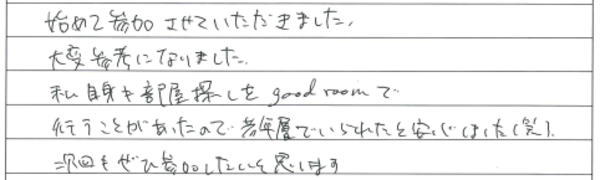 始めて参加させていただきました。
大変参考になりました。
私自身も部屋探しを good room で
行うことがあったので若年層でいられたと安心しました(笑)。
次回もぜひ参加したいと思います